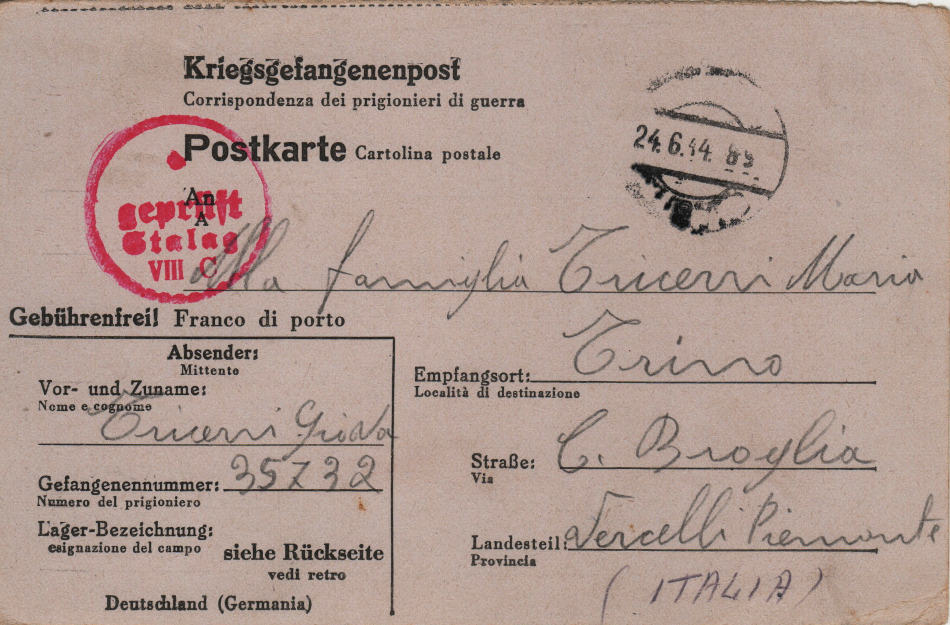 Kriegsgefangenenpost
Corrispondenza dei prigionieri di guerra
Postkarte Cartolina postale
24.6.44.
An
A
geprüft
Stalag
VIII C
Alla famiglia Tricerri Maria
Gebührenfrei! Franco di porto
Trino
Empfangsort:
Località di destinazione
C. Broglia
Straße:
Via
Vercelli Piemonte
Landesteil:
Provincia
( ITALIA )
Absender:
Mittente
Vor- und Zuname:
Nome e cognome
Tricerri Giova
Gefangenennummer: 35732
Numero del prigioniero
Lager-Bezeichnung:
esignazione del campo
siehe Rückseite
vedi retro
Deutschland (Germania)